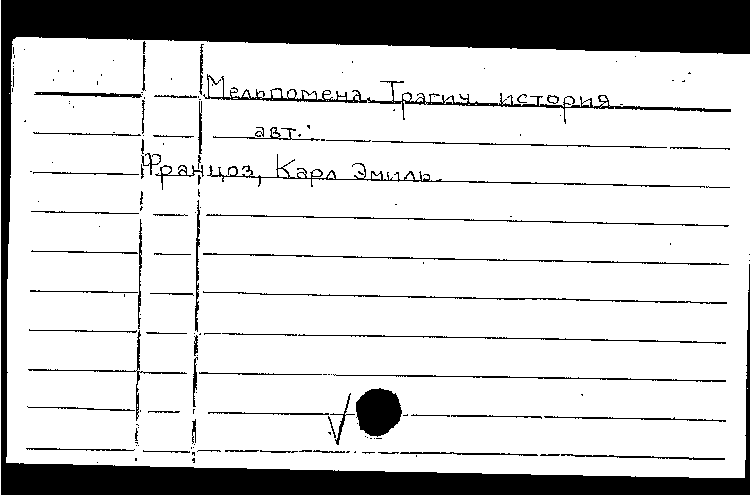 Мельпомена. Трагич. история.
авт.:
Француз, Карл Эмиль.